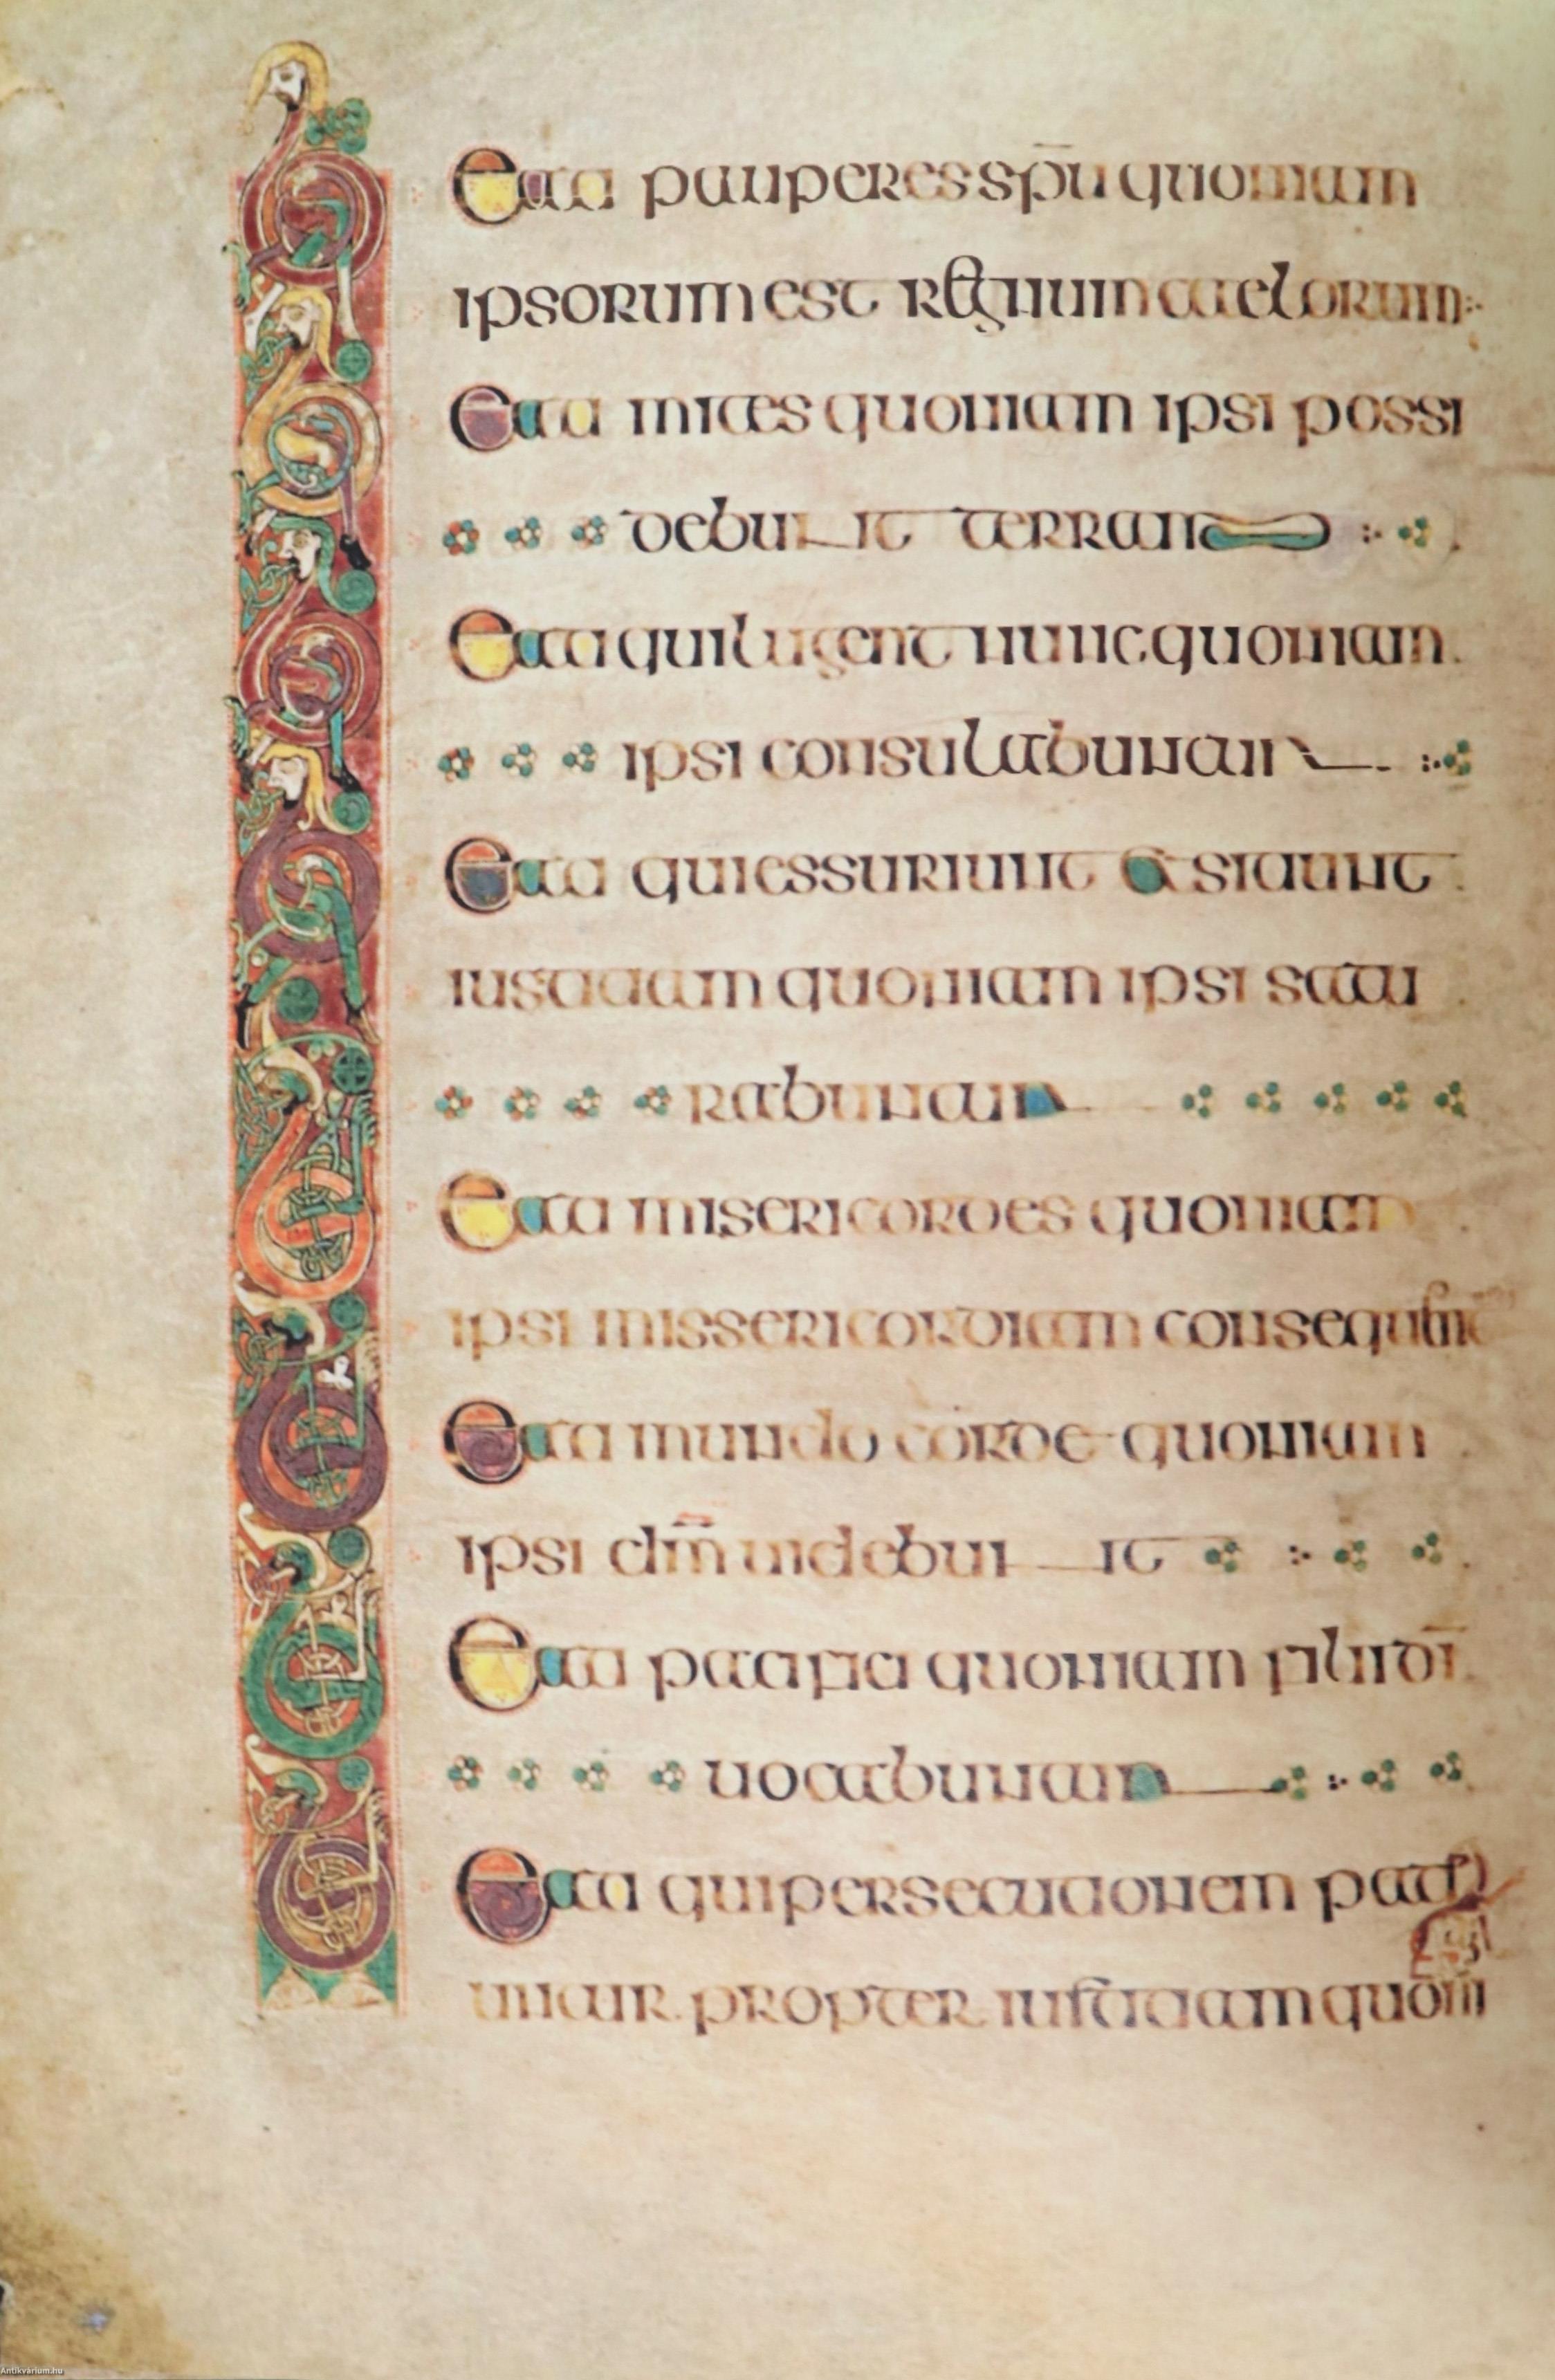 Beati pauperes spū quoniam
ipsorum est regnum caelorum
Beati mites quoniam ipsi possi
debunt terram
Beati qui lugent nunc quoniam
ipsi consulabuntur
Beati qui essuriunt et sitiunt
iustitiam quoniam ipsi satu
rabuntur
Beati misericordes quoniam
ipsi missericordiam consequntur
Beati mundo corde quoniam
ipsi dm̄ uidebunt
Beati pacifici quoniam filii dī
uocabuntur
Beati qui persecutionem pati
untur propter iustitiam quōm
Antikvarium.hu